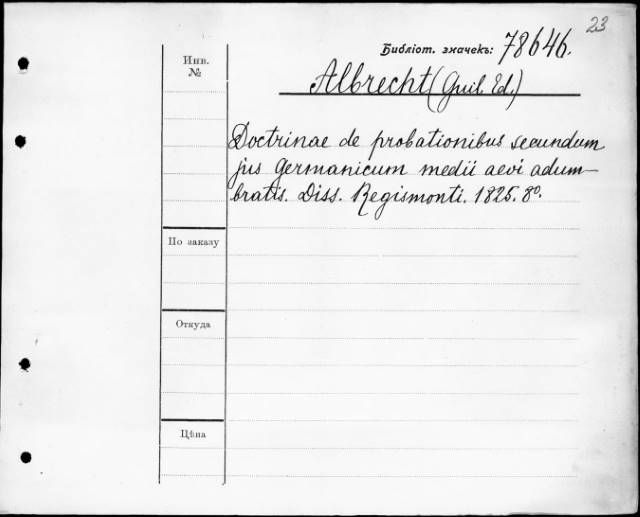 23
Библіот. значекъ: 78646.
Инв.
№
Albrecht (Guil. Ed.)
Doctrinae de probationibus secundum
jus germanicum medii aevi adum-
bratis. Diss. Regismonti. 1825. 8º.
По заказу
Откуда
Цѣна